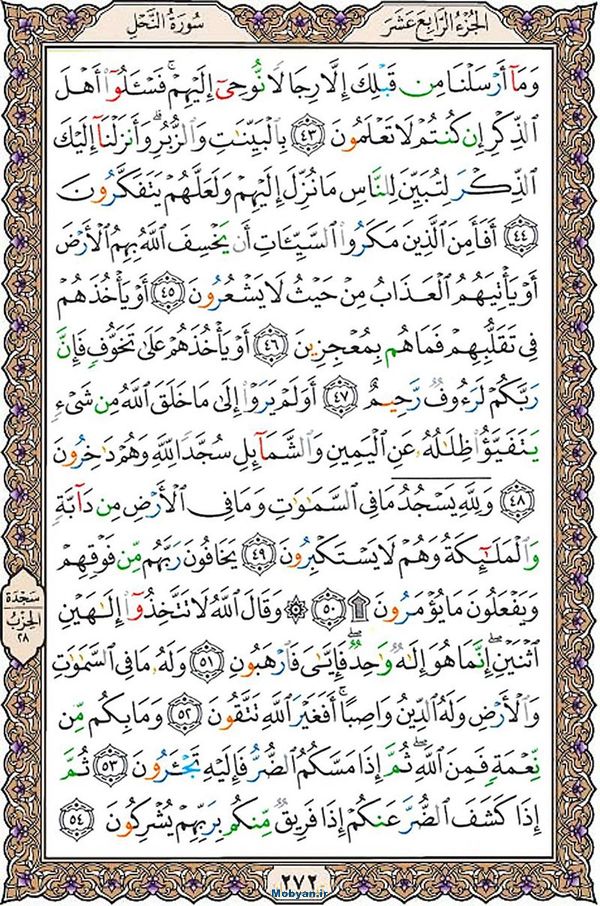 الجُزءُ الرَّابِعُ عَشَرَ
سُورَةُ النَّحْلِ
وَمَآ أَرْسَلْنَا مِن قَبْلِكَ إِلَّا رِجَالًا نُّوحِىٓ إِلَيْهِمْ ۚ فَسْـَٔلُوٓا۟ أَهْلَ
ٱلذِّكْرِ إِن كُنتُمْ لَا تَعْلَمُونَ ﴿٤٣﴾ بِٱلْبَيِّنَـٰتِ وَٱلزُّبُرِ ۗ وَأَنزَلْنَآ إِلَيْكَ
ٱلذِّكْرَ لِتُبَيِّنَ لِلنَّاسِ مَا نُزِّلَ إِلَيْهِمْ وَلَعَلَّهُمْ يَتَفَكَّرُونَ
﴿٤٤﴾ أَفَأَمِنَ ٱلَّذِينَ مَكَرُوا۟ ٱلسَّيِّـَٔاتِ أَن يَخْسِفَ ٱللَّهُ بِهِمُ ٱلْأَرْضَ
أَوْ يَأْتِيَهُمُ ٱلْعَذَابُ مِنْ حَيْثُ لَا يَشْعُرُونَ ﴿٤٥﴾ أَوْ يَأْخُذَهُمْ
فِى تَقَلُّبِهِمْ فَمَا هُم بِمُعْجِزِينَ ﴿٤٦﴾ أَوْ يَأْخُذَهُمْ عَلَىٰ تَخَوُّفٍ فَإِنَّ
رَبَّكُمْ لَرَءُوفٌ رَّحِيمٌ ﴿٤٧﴾ أَوَلَمْ يَرَوْا۟ إِلَىٰ مَا خَلَقَ ٱللَّهُ مِن شَىْءٍ
يَتَفَيَّؤُا۟ ظِلَـٰلُهُۥ عَنِ ٱلْيَمِينِ وَٱلشَّمَآئِلِ سُجَّدًا لِّلَّهِ وَهُمْ دَٰخِرُونَ
﴿٤٨﴾ وَلِلَّهِ يَسْجُدُ مَا فِى ٱلسَّمَـٰوَٰتِ وَمَا فِى ٱلْأَرْضِ مِن دَآبَّةٍ
وَٱلْمَلَـٰٓئِكَةُ وَهُمْ لَا يَسْتَكْبِرُونَ ﴿٤٩﴾ يَخَافُونَ رَبَّهُم مِّن فَوْقِهِمْ
وَيَفْعَلُونَ مَا يُؤْمَرُونَ ۩ ﴿٥٠﴾ ۞ وَقَالَ ٱللَّهُ لَا تَتَّخِذُوٓا۟ إِلَـٰهَيْنِ
ٱثْنَيْنِ ۖ إِنَّمَا هُوَ إِلَـٰهٌ وَٰحِدٌ ۖ فَإِيَّـٰىَ فَٱرْهَبُونِ ﴿٥١﴾ وَلَهُۥ مَا فِى ٱلسَّمَـٰوَٰتِ
وَٱلْأَرْضِ وَلَهُ ٱلدِّينُ وَاصِبًا ۚ أَفَغَيْرَ ٱللَّهِ تَتَّقُونَ ﴿٥٢﴾ وَمَا بِكُم مِّن
نِّعْمَةٍ فَمِنَ ٱللَّهِ ۖ ثُمَّ إِذَا مَسَّكُمُ ٱلضُّرُّ فَإِلَيْهِ تَجْـَٔرُونَ ﴿٥٣﴾ ثُمَّ
إِذَا كَشَفَ ٱلضُّرَّ عَنكُمْ إِذَا فَرِيقٌ مِّنكُم بِرَبِّهِمْ يُشْرِكُونَ ﴿٥٤﴾
سَجدَة
الحِزبُ
٢٨
٢٧٢
Mobyan.ir